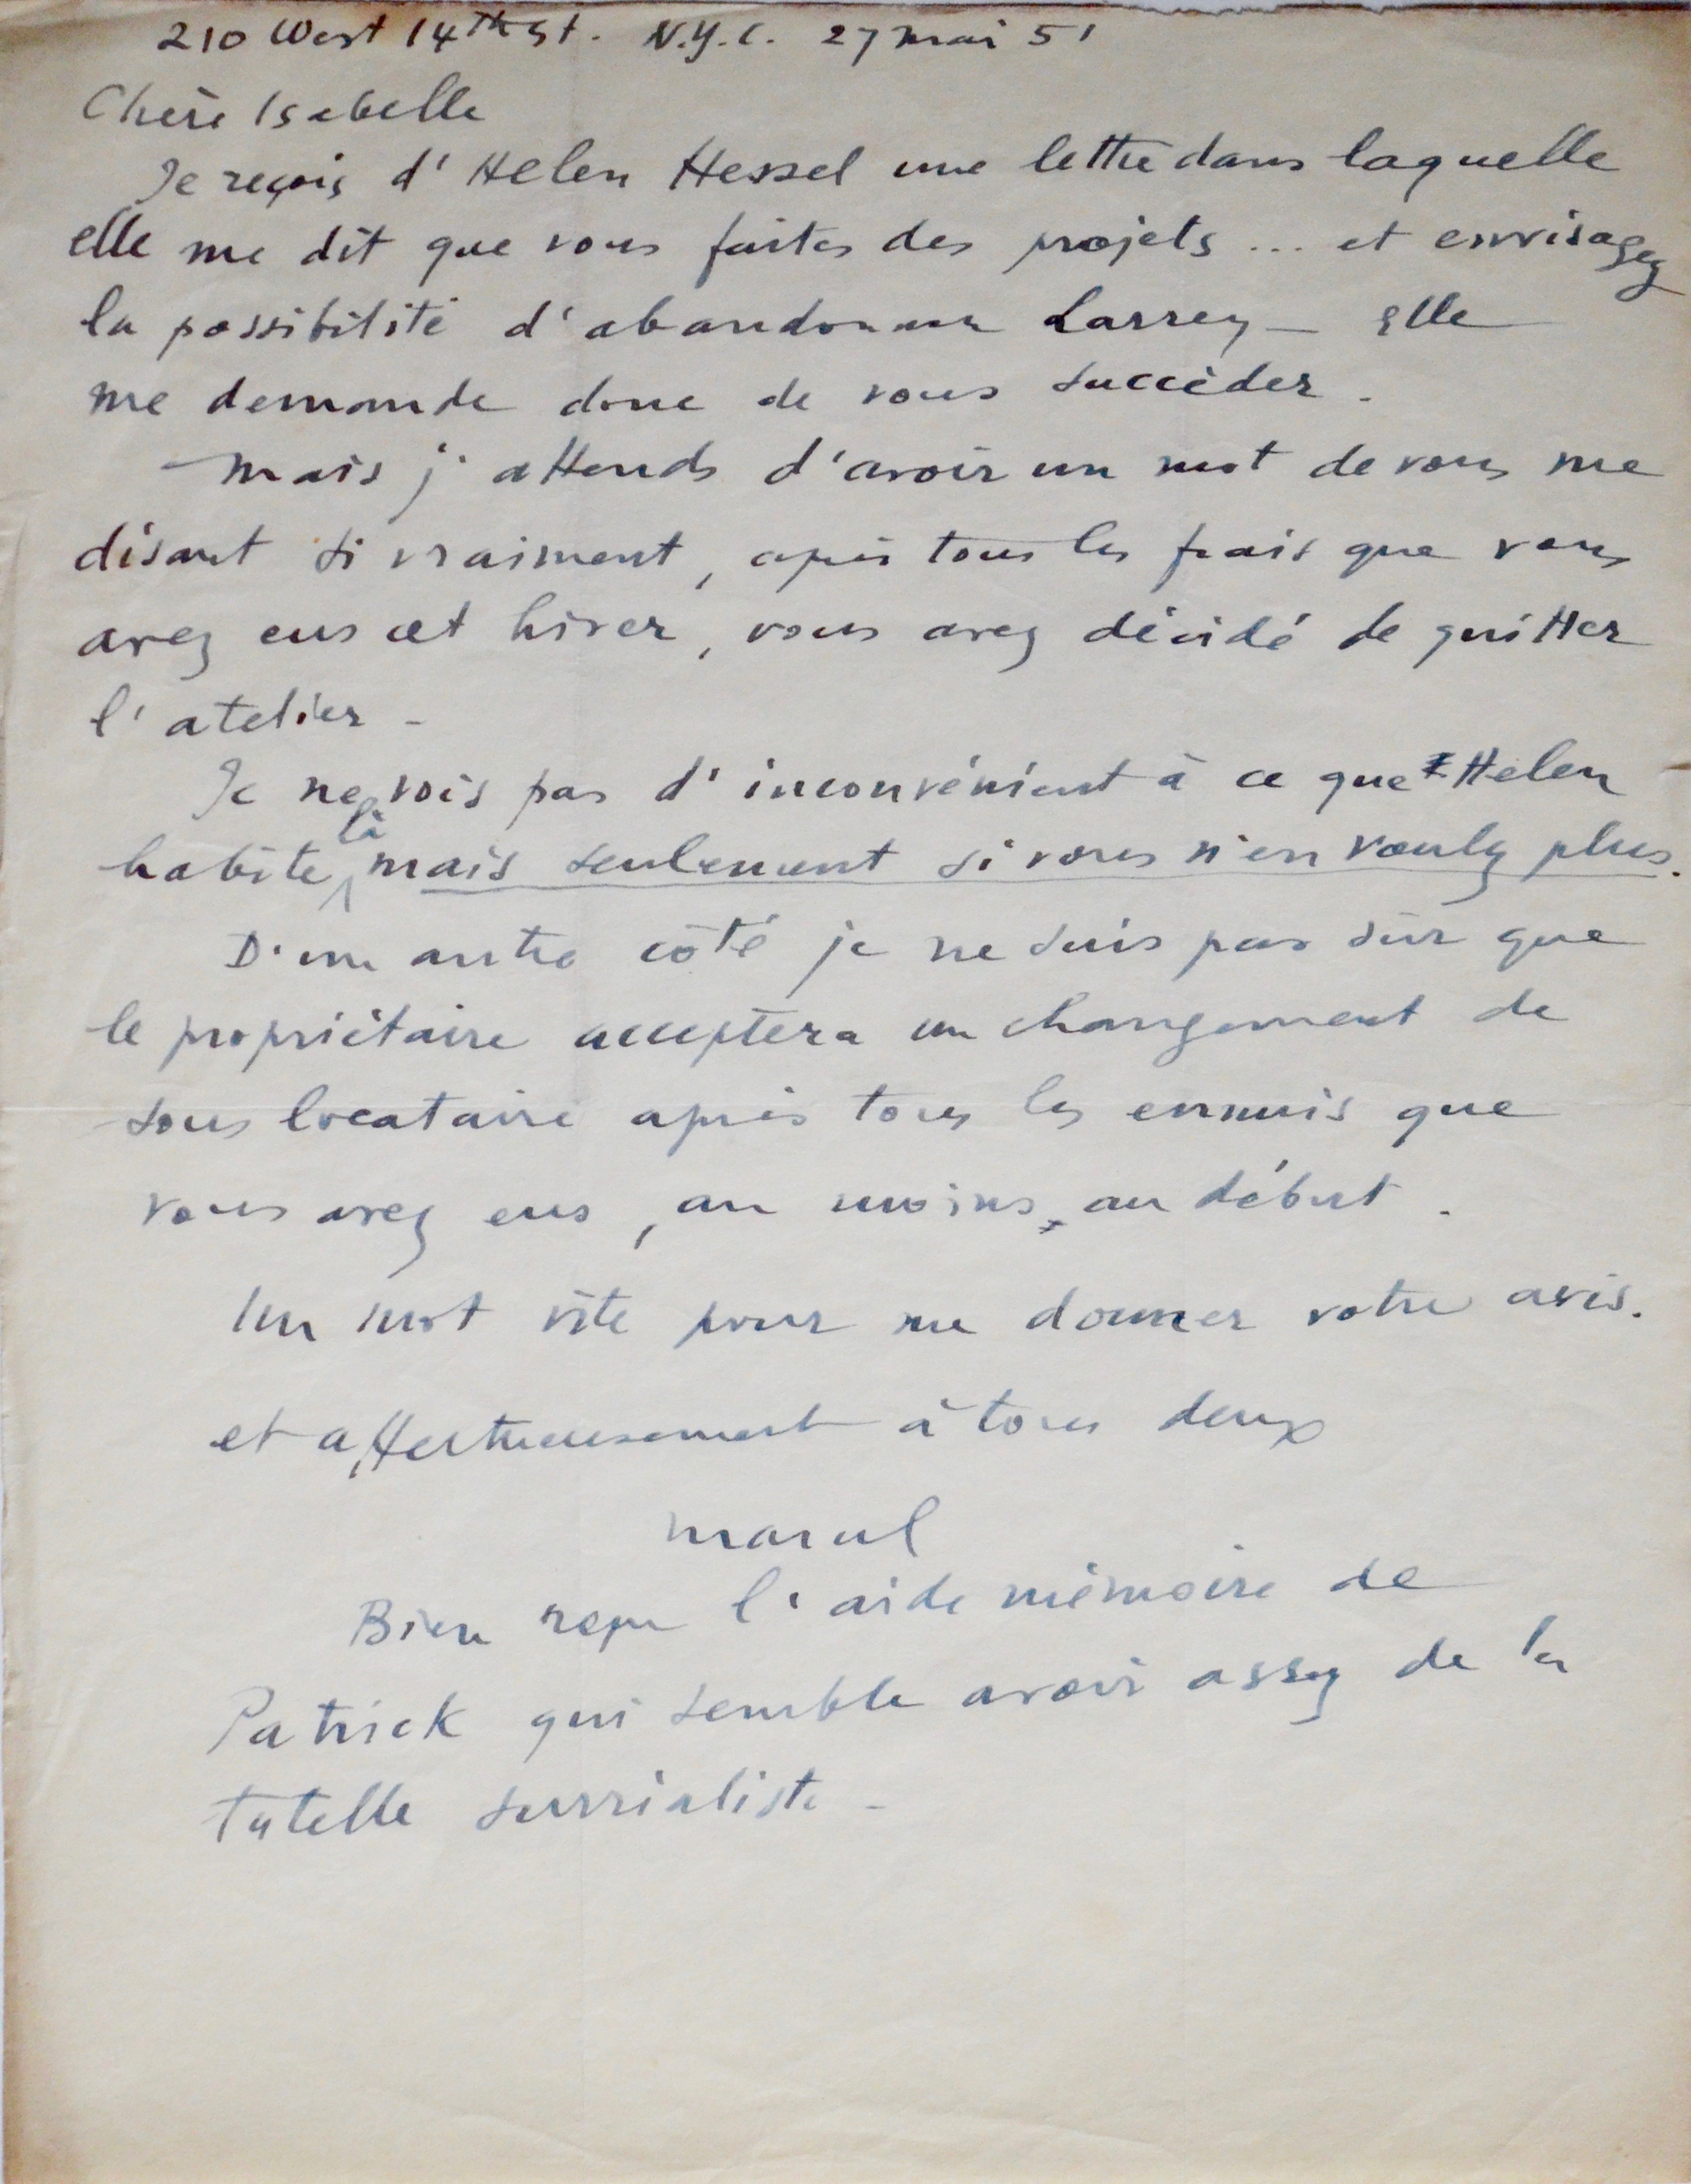 210 West 14th St. N.Y.C. 27 mai 51
Chère Isabelle
Je reçois d'Helen Hessel une lettre dans laquelle
elle me dit que vous faites des projets ... et envisagez
la possibilité d'abandonner Larrey — elle
me demande donc de vous succèder.
Mais j'attends d'avoir un mot de vous me
disant si vraiment, après tous les frais que vous
avez eus cet hiver, vous avez décidé de quitter
l'atelier -
Je ne vois pas d'inconvénient à ce que Helen
habite là mais seulement si vous n'en voulez plus.
D'un autre côté je ne suis pas sûr que
le propriétaire acceptera un changement de
sous locataire après tous les ennuis que
vous avez eus, au moins, au début.
Un mot vite pour me donner votre avis.
et affectueusement à tous deux
Marcel
Bien reçu l'aide mémoire de
Patrick qui semble avoir assez de la
tutelle surréaliste -